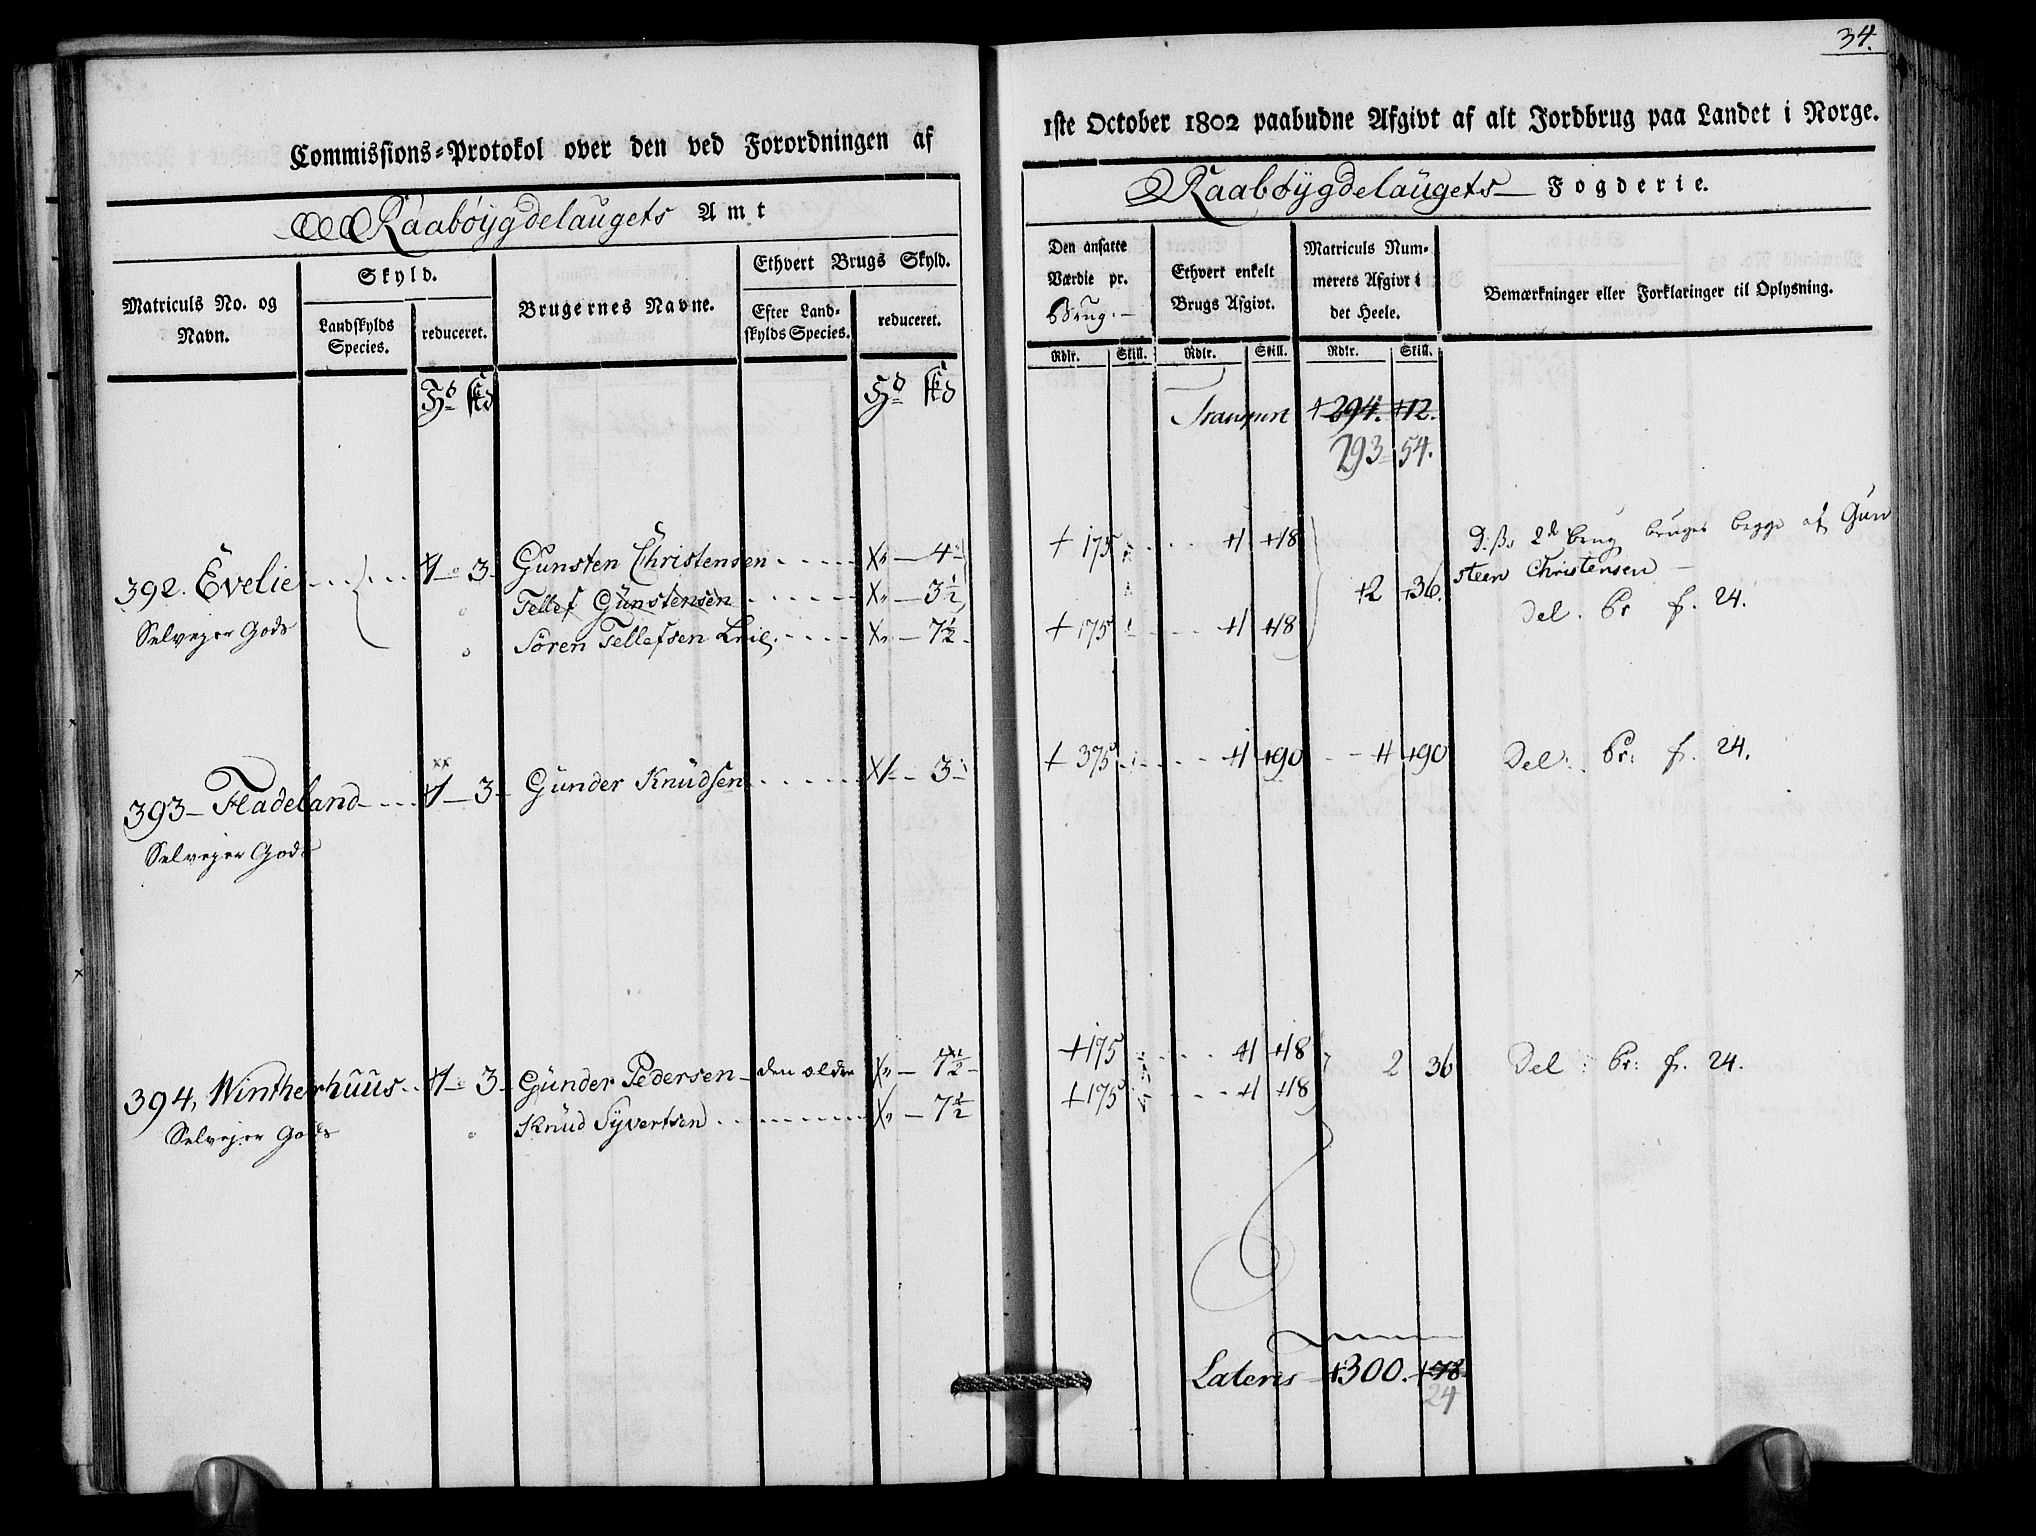 34.
Commissions-Protokol over den ved Forordningen af
Raabøygdelaugets Amt
Matriculs No. og Navn.
Skyld.
Landskylds Species.
reduceret.
Brugernes Navne.
Ethvert Brugs Skyld.
Efter Landskylds Species.
reduceret.
392. Evelie 1 - 3
Selvejer Gods
Gunsten Christensen - 4
Tellef Gunstensen - 3½
Sören Tellefsen - 7½
393 - Fladeland 1 - 3
Gunder Knudsen 1 - 3
Selvejer Gods
394, Wintherhuus 1 - 3
Gunder Pedersen den ældre - 7½
Selvejer Gods
Knud Syvertsen - 7½
1ste October 1802 paabudne Afgivt af alt Jordbrug paa Landet i Norge.
Raabøygdelaugets Fogderie.
Den ansatte Værdie pr. Brug.
Ethvert enkelt Brugs Afgivt.
Matriculs Nummerets Afgivt i det Heele.
Bemærkninger eller Forklaringer til Oplysning.
Rdlr. Skill. Rdlr. Skill. Rdlr. Skill.
Transport 294. 12.
293 - 54.
175 1 18
2d Brug bruges begge af Gun
2 36. steen Christensen -
175 1 18
Del. Pr f. 24.
375 1 90 1 90 Del: Pr: f. 24.
175 1 18
2 36 Del: Pr: f. 24.
175 1 18
Lateris 300. 48
24